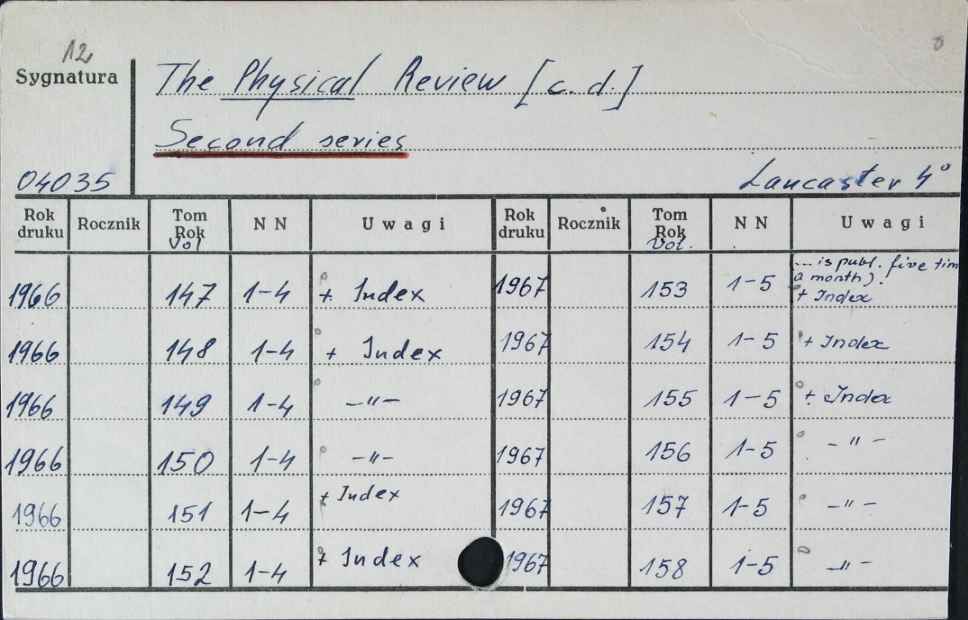 12
Sygnatura
The Physical Review [c. d.]
Second series
04035
Lancaster 4°
Rok druku Rocznik Tom Rok Vol N N Uwagi Rok druku Rocznik Tom Rok Vol. N N Uwagi
1966 147 1-4 + Index 1967 153 1-5 .... is publ. five tim a month). + Index
1966 148 1-4 + Index 1967 154 1-5 + Index
1966 149 1-4 -"- 1967 155 1-5 + Index
1966 150 1-4 -"- 1967 156 1-5 -"-
1966 151 1-4 + Index 1967 157 1-5 -"-
1966 152 1-4 + Index 1967 158 1-5 -"-